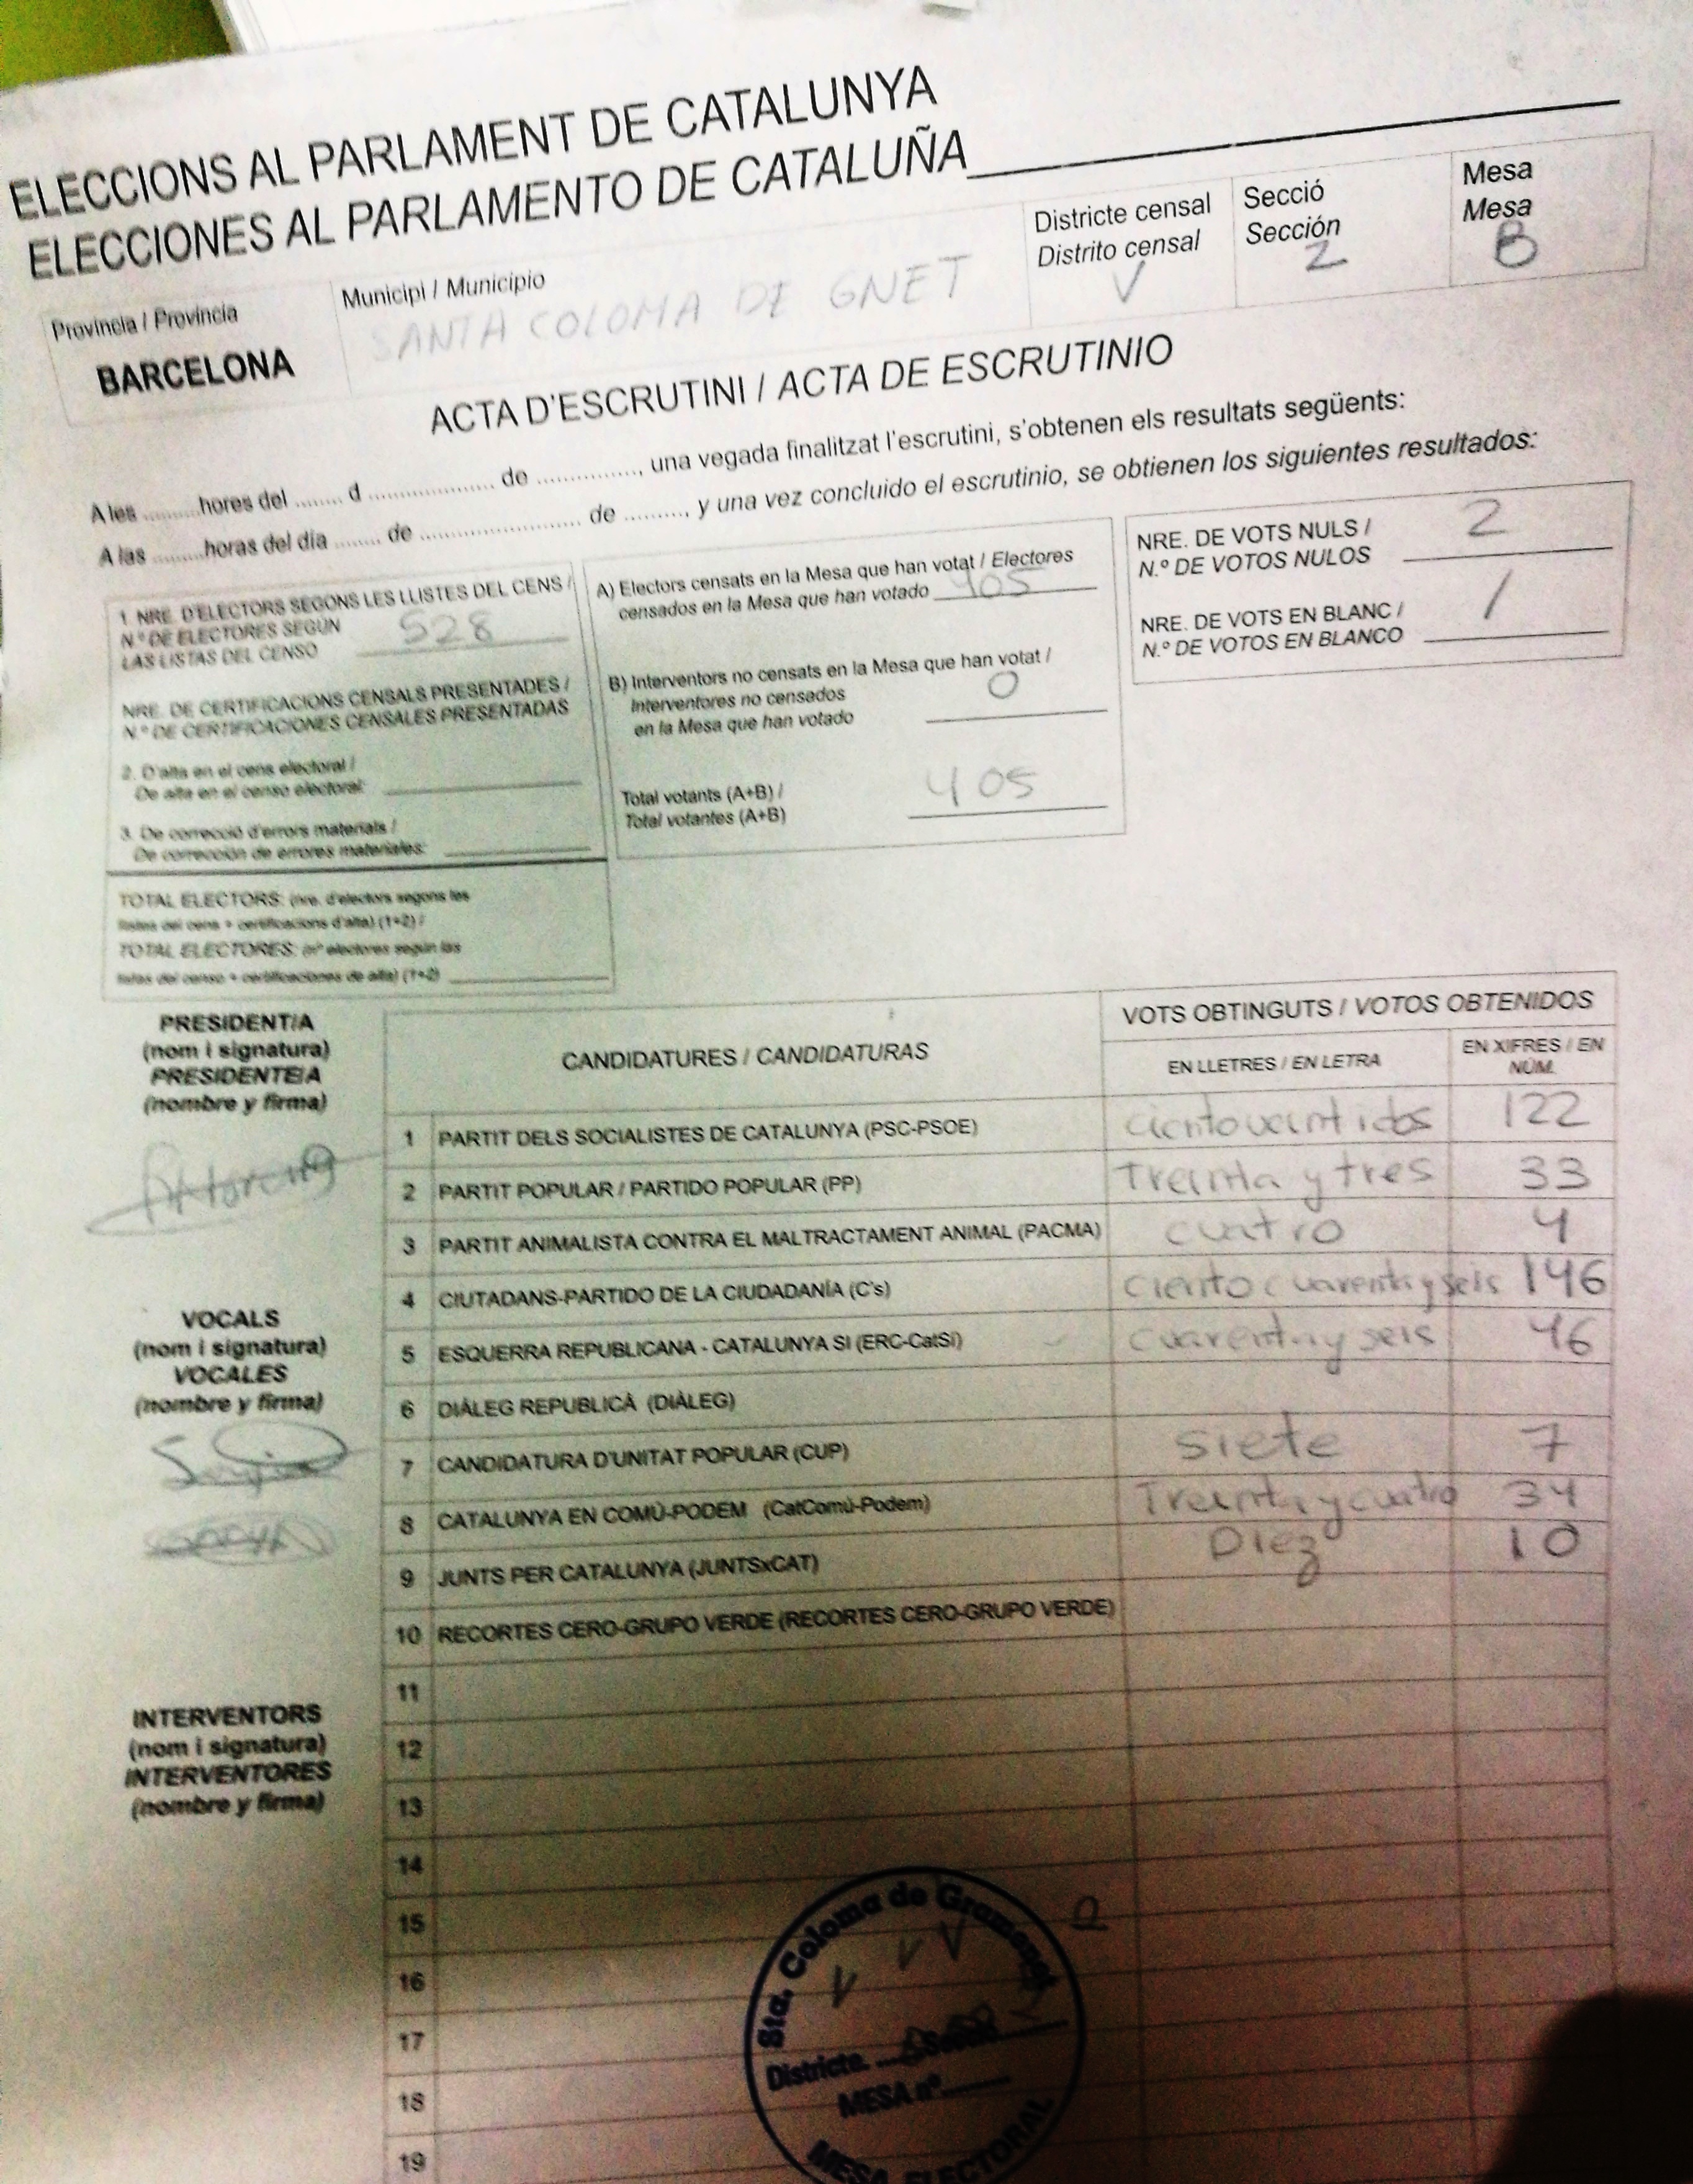 ELECCIONS AL PARLAMENT DE CATALUNYA
ELECCIONES AL PARLAMENTO DE CATALUÑA
Província / Provincia
BARCELONA
Municipi / Municipio
SANTA COLOMA DE GNET
Districte censal
Distrito censal
V
Secció
Sección
2
Mesa
Mesa
B
ACTA D'ESCRUTINI / ACTA DE ESCRUTINIO
A les ..........hores del ........ d ..................... de ................, una vegada finalitzat l'escrutini, s'obtenen els resultats següents:
A las .........horas del día ........ de .......................... de .........., y una vez concluido el escrutinio, se obtienen los siguientes resultados:
1. NRE. D'ELECTORS SEGONS LES LLISTES DEL CENS /
N.º DE ELECTORES SEGÚN
LAS LISTAS DEL CENSO 528
NRE. DE CERTIFICACIONS CENSALS PRESENTADES /
N.º DE CERTIFICACIONES CENSALES PRESENTADAS
2. D'alta en el cens electoral /
De alta en el censo electoral:
3. De correcció d'errors materials /
De corrección de errores materiales:
TOTAL ELECTORS: (nre. d'electors segons les
llistes del cens + certificacions d'alta) (1+2) /
TOTAL ELECTORES: (nº electores según las
listas del censo + certificaciones de alta) (1+2)
A) Electors censats en la Mesa que han votat / Electores
censados en la Mesa que han votado 405
B) Interventors no censats en la Mesa que han votat /
Interventores no censados
en la Mesa que han votado 0
Total votants (A+B) /
Total votantes (A+B) 405
NRE. DE VOTS NULS /
N.º DE VOTOS NULOS 2
NRE. DE VOTS EN BLANC /
N.º DE VOTOS EN BLANCO 1
PRESIDENT/A
(nom i signatura)
PRESIDENTE/A
(nombre y firma)
VOCALS
(nom i signatura)
VOCALES
(nombre y firma)
INTERVENTORS
(nom i signatura)
INTERVENTORES
(nombre y firma)
CANDIDATURES / CANDIDATURAS
VOTS OBTINGUTS / VOTOS OBTENIDOS
EN LLETRES / EN LETRA
EN XIFRES / EN
NÚM.
1 PARTIT DELS SOCIALISTES DE CATALUNYA (PSC-PSOE) ciento veintidos 122
2 PARTIT POPULAR / PARTIDO POPULAR (PP) Treinta y tres 33
3 PARTIT ANIMALISTA CONTRA EL MALTRACTAMENT ANIMAL (PACMA) cuatro 4
4 CIUTADANS-PARTIDO DE LA CIUDADANÍA (C's) ciento cuarenta y seis 146
5 ESQUERRA REPUBLICANA - CATALUNYA SI (ERC-CatSí) cuarenta y seis 46
6 DIÀLEG REPUBLICÀ (DIÀLEG)
7 CANDIDATURA D'UNITAT POPULAR (CUP) siete 7
8 CATALUNYA EN COMÚ-PODEM (CatComú-Podem) Treinta y cuatro 34
9 JUNTS PER CATALUNYA (JUNTSxCAT) Diez 10
10 RECORTES CERO-GRUPO VERDE (RECORTES CERO-GRUPO VERDE)
11
12
13
14
15
16
17
18
19
Sta. Coloma de Gramenet
Districte. Secció
MESA nº
MESA ELECTORAL